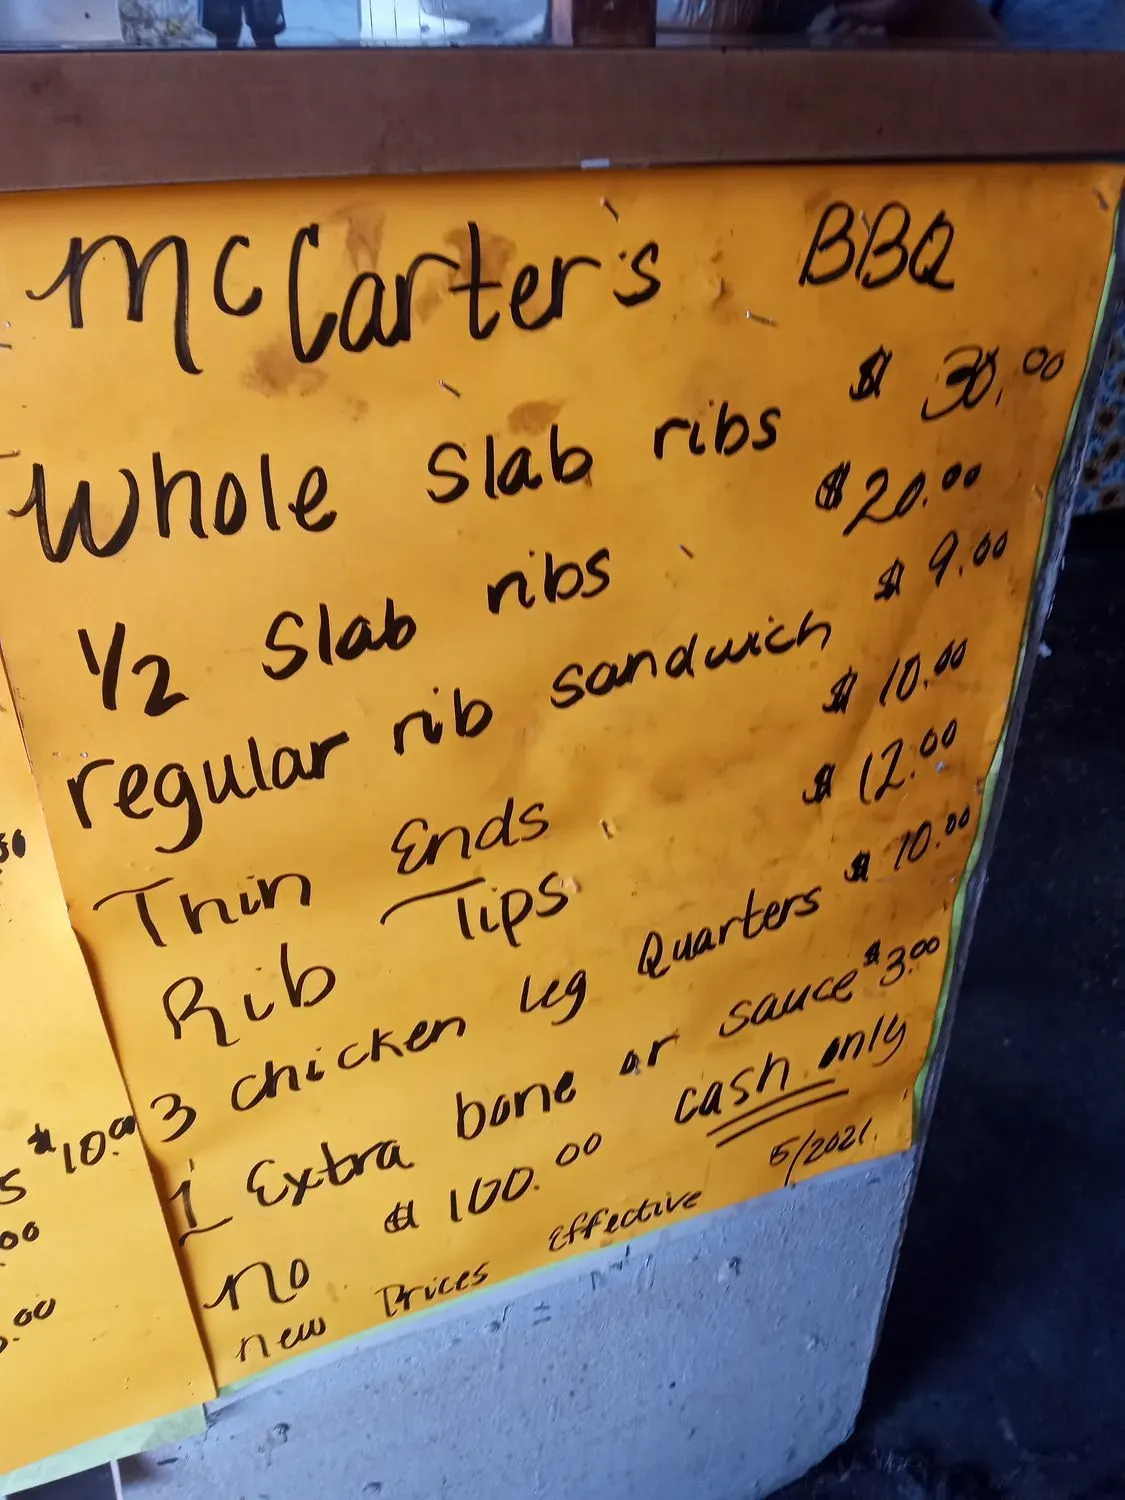 McCarter's BBQ
Whole Slab ribs $ 30.00
1/2 Slab ribs $20.00
regular rib sandwich $ 9.00
Thin Ends $ 10.00
Rib Tips $ 12.00
3 chicken leg Quarters $ 10.00
1 Extra bone or sauce $3.00
no $ 100.00 cash only
new Prices Effective 5/2021.
$10.00
.00
.00